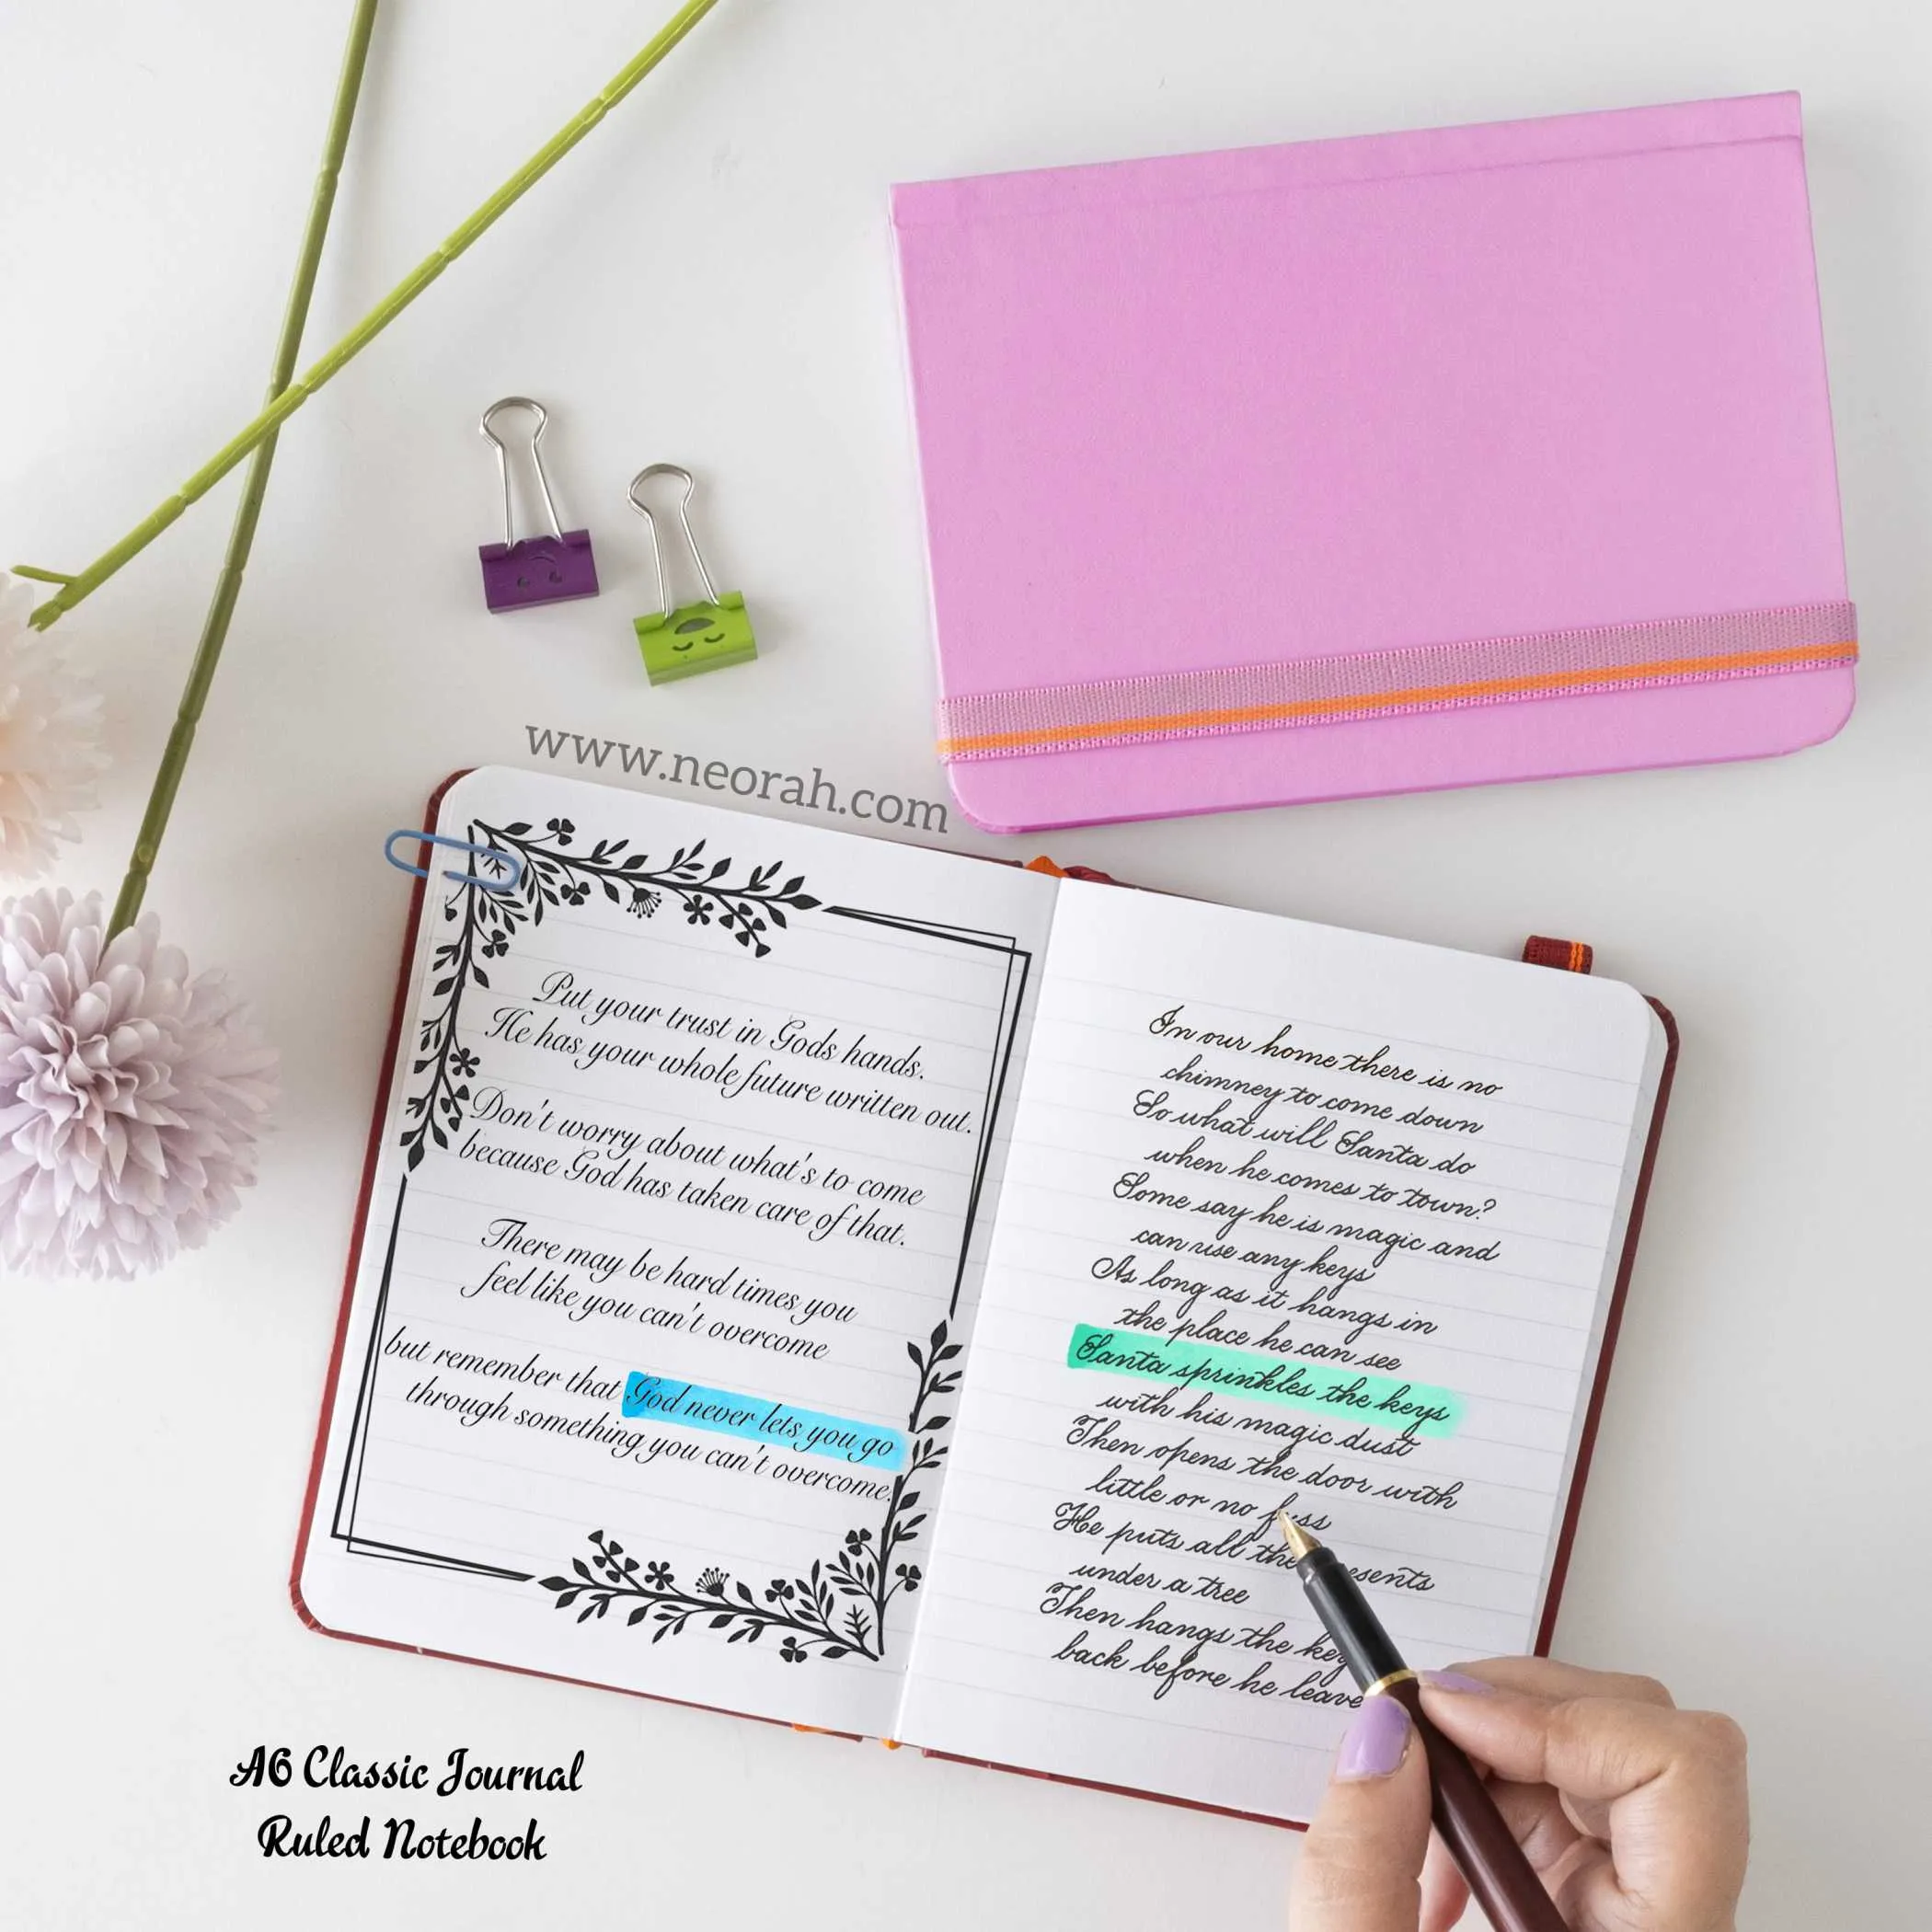 www.neorah.com
Put your trust in Gods hands.
He has your whole future written out.
Don't worry about what's to come
because God has taken care of that.
There may be hard times you
feel like you can't overcome
but remember that God never lets you go
through something you can't overcome.
In our home there is no
chimney to come down
So what will Santa do
when he comes to town?
Some say he is magic and
can use any keys
As long as it hangs in
the place he can see
Santa sprinkles the keys
with his magic dust
Then opens the door with
little or no fuss
He puts all the
under a tree
Then hangs the key
back before he leave
A6 Classic Journal
Ruled Notebook